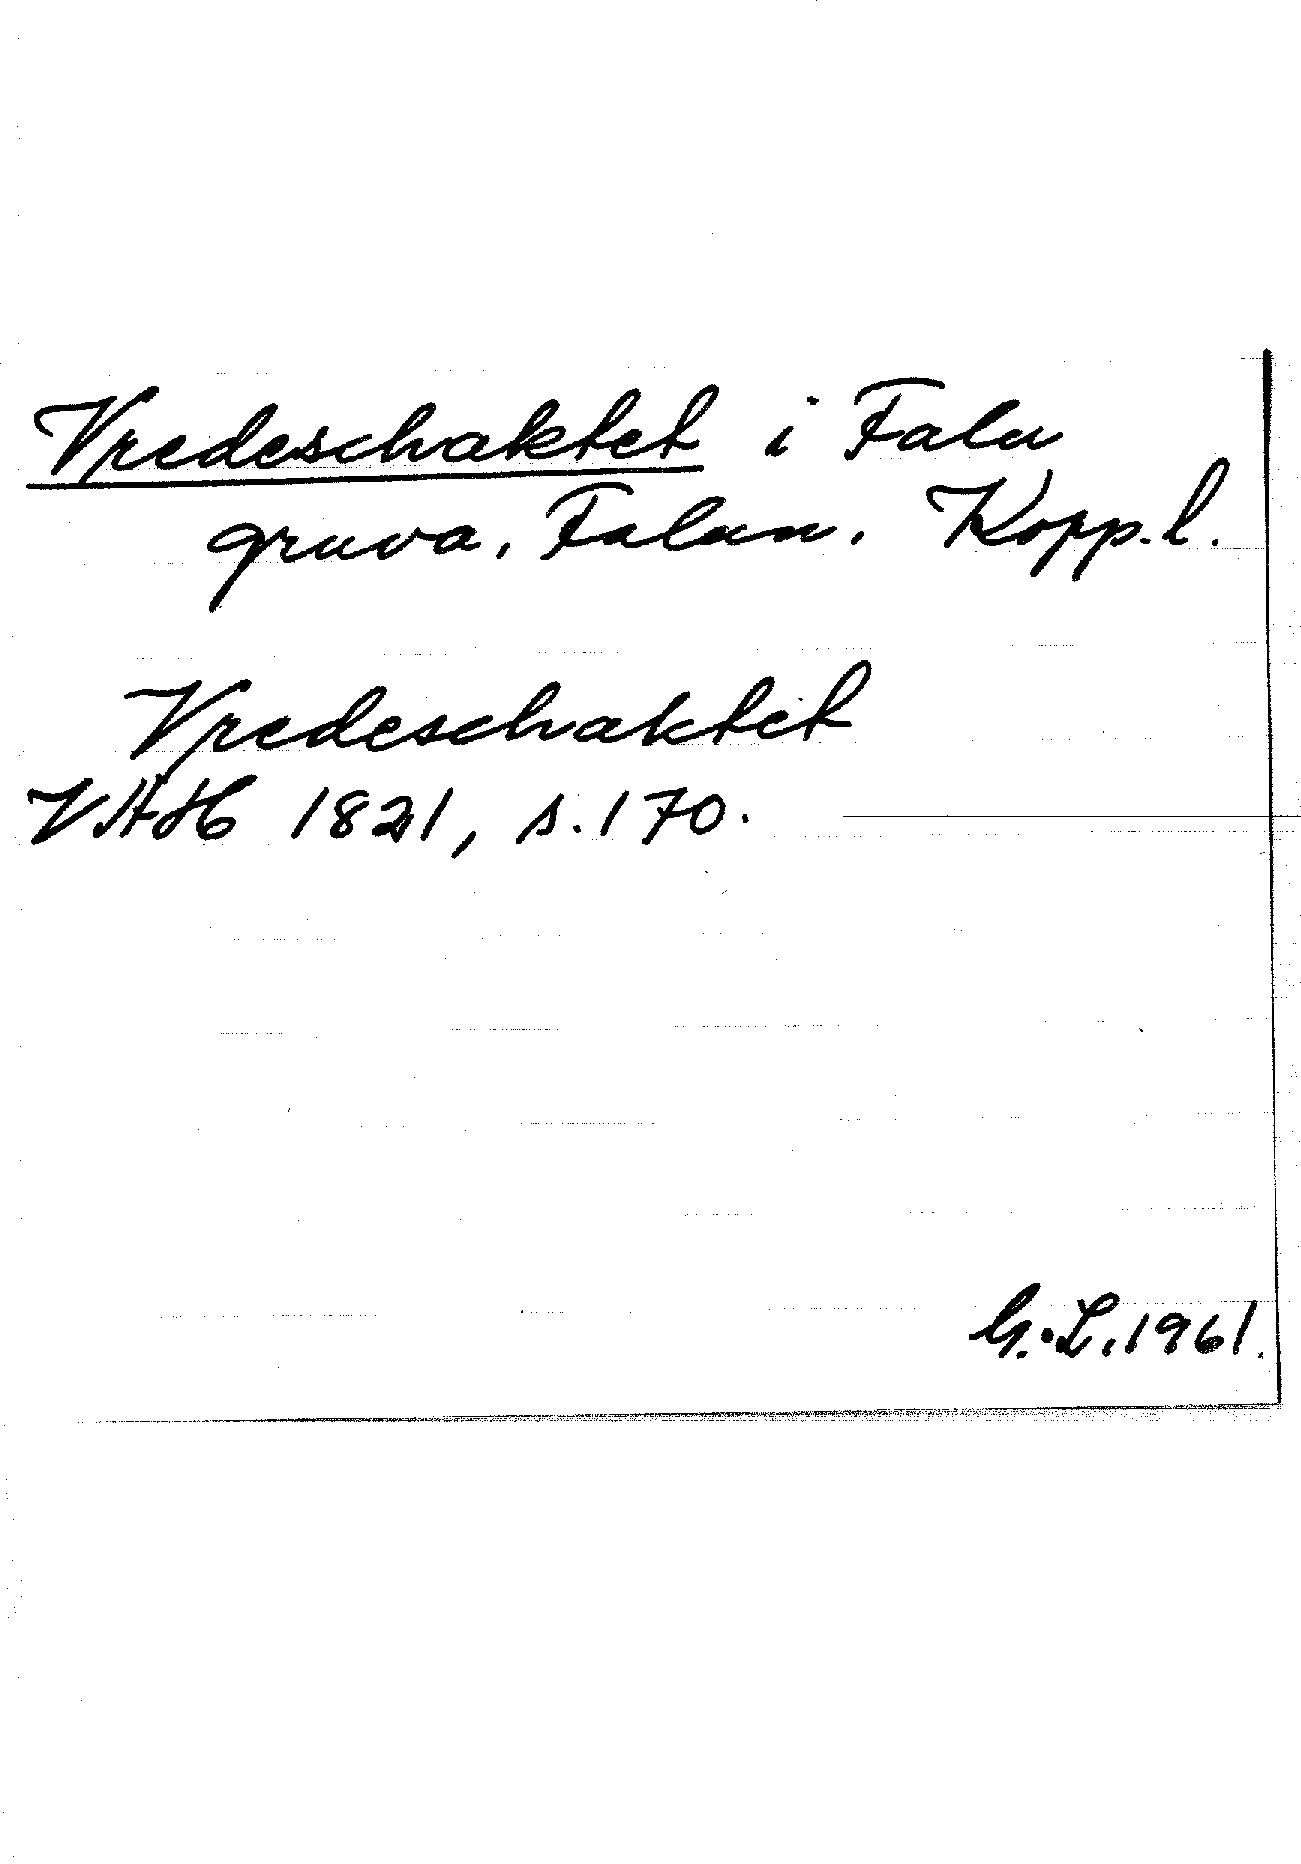 Vredeschaktet i Falu
gruva, Falun. Kopp.l.
Vredeschaktet
VAH 1821, s.170.
G.L.1961.